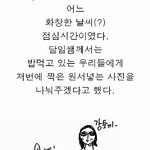 어느
화창한 날씨(?)
점심시간이였다.
담임쌤께서는
밥먹고 있는 우리들에게
저번에 찍은 원서넣는 사진을
나눠주겠다고 했다.